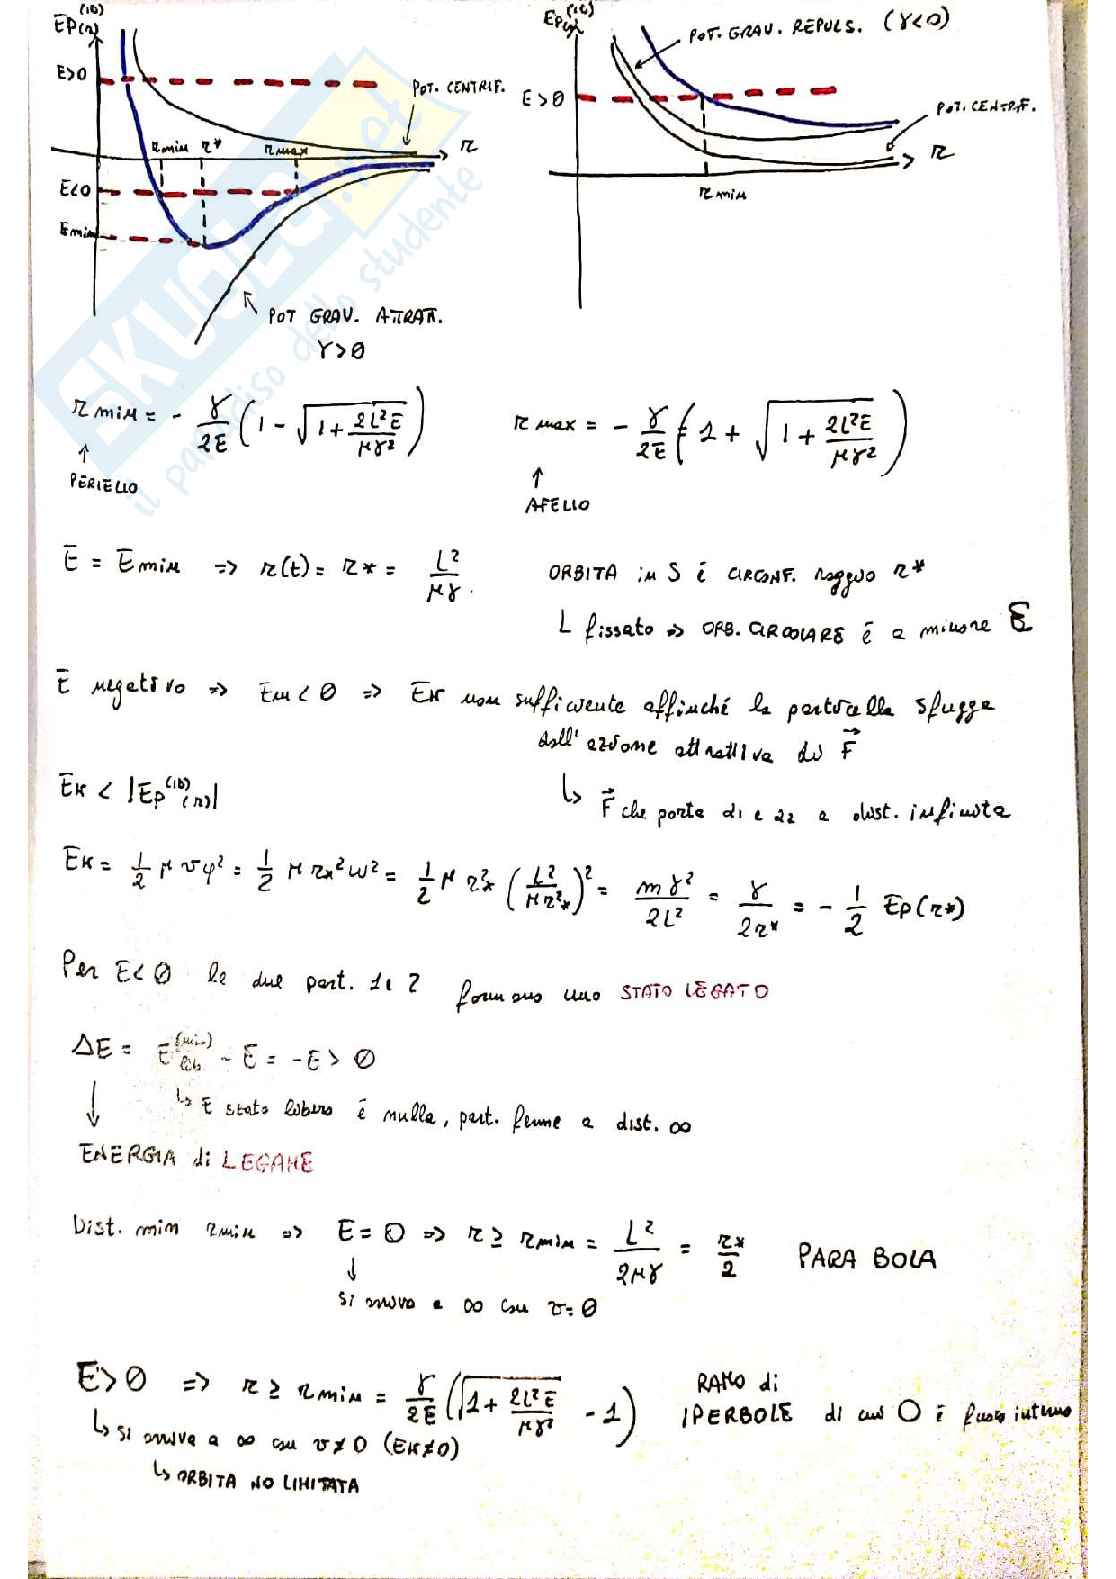 EP(r)(1D)
E>0
POT. CENTRIF.
r min r* r max
r
E<0
E min
POT GRAV. ATTRATT.
γ>0
EP(r)(1D)
POT. GRAV. REPULS. (γ<0)
E>0
POT. CENTRIF.
r
r min
SKUOLA.net
il paradiso dello studente
r min = - γ/2E (1 - √(1 + 2L²E/μγ²))
r max = - γ/2E (1 + √(1 + 2L²E/μγ²))
↑ PERIELIO
↑ AFELIO
E = E min => r(t) = r* = L²/μγ. ORBITA in S è CIRCONF. raggio r*
L fissato => ORB. CIRCOLARE è a minore E
E negativo => Em<0 => EK non sufficiente affinché la particella sfugga
dall'azione attrattiva di F⃗
EK < |EP(1D)(r)|
↳ F⃗ che porta d1 e d2 a dist. infinita
EK = 1/2 μ vφ² = 1/2 μ r*² ω² = 1/2 μ r*² (L²/μr²*)² = mγ²/2L² = γ/2r* = - 1/2 EP(r*)
Per E<0 le due part. 1 e 2 formano uno STATO LEGATO
ΔE = E(min)lib - E = -E > 0
↳ E stato libero è nulla, part. ferme a dist. ∞
↓
ENERGIA di LEGAME
Dist. min r min => E=0 => r ≥ r min = L²/2μγ = r*/2 PARABOLA
↓
si arriva a ∞ con v=0
E>0 => r ≥ r min = γ/2E (√(1 + 2L²E/μγ²) - 1) RAMO di
IPERBOLE di cui O è fuoco interno
↳ si arriva a ∞ con v≠0 (EK≠0)
↳ ORBITA NO LIMITATA